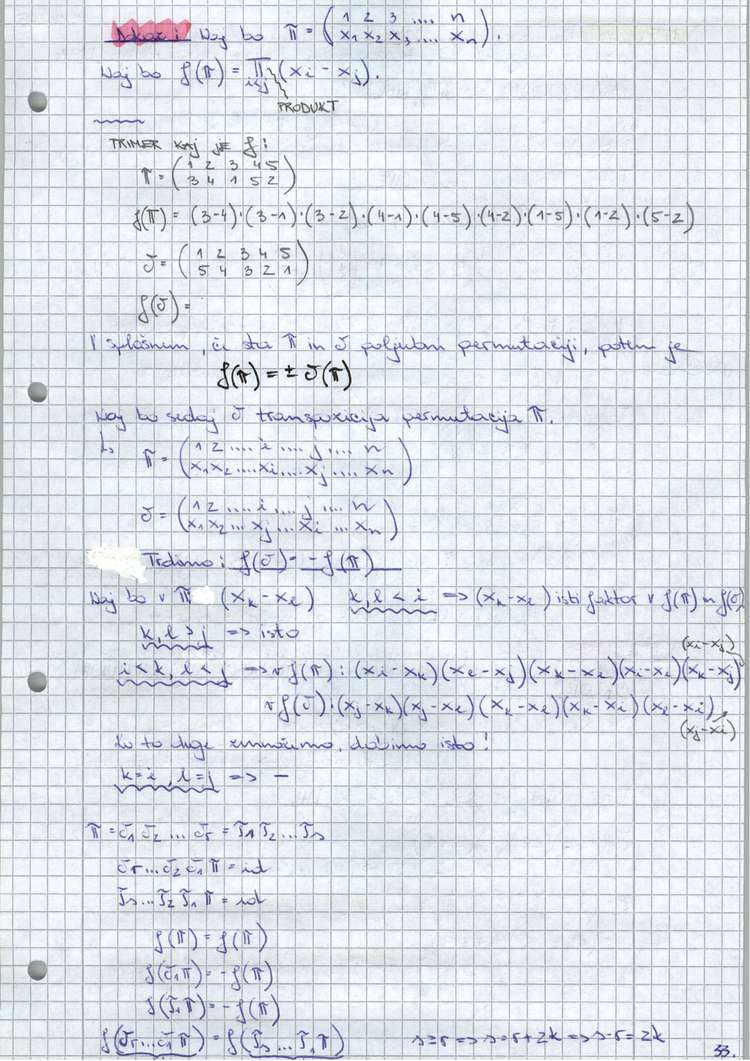 Dokaz: Naj bo π = ( 1 2 3 .... n
x₁ x₂ x₃ .... xₙ ).
Naj bo f(π) = ∏ (xi - xj).
i<j
PRODUKT
PRIMER KAJ JE f:
π = ( 1 2 3 4 5
3 4 1 5 2 )
f(π) = (3-4)·(3-1)·(3-2)·(4-1)·(4-5)·(4-2)·(1-5)·(1-2)·(5-2)
σ = ( 1 2 3 4 5
5 4 3 2 1 )
f(σ) =
V splošnem, če sta π in σ poljubni permutaciji, potem je
f(π) = ± σ(π)
Naj bo sedaj σ transpozicija permutacija π.
π = ( 1 2 .... i .... j .... n
x₁ x₂ .... xi .... xj .... xn )
σ = ( 1 2 .... i .... j .... n
x₁ x₂ ... xj ... xi ... xn )
Trdimo: f(σ) = - f(π)
Naj bo v π (xk - xl) k, l < i => (xk - xl) isti faktor v f(π) in f(σ)
k, l > j => isto
(xi - xj)
i < k, l < j => v f(π): (xi - xk)(xl - xj)(xk - xl)(xi - xl)(xk - xj)
v f(σ): (xj - xk)(xj - xl)(xk - xl)(xk - xi)(xl - xi)
(xj - xi)
Ko to zmnožimo, dobimo isto!
k = i, l = j => -
π = σ₁ σ₂ ... σr = τ₁ τ₂ ... τs
σr ... σ₂ σ₁ π = id
τs ... τ₂ τ₁ π = id
f(π) = f(π)
f(σ₁π) = - f(π)
f(τ₁π) = - f(π)
f(σr ... σ₁ π) = f(τs ... τ₁ π) s ≥ r => s = r + 2k => s - r = 2k
33.